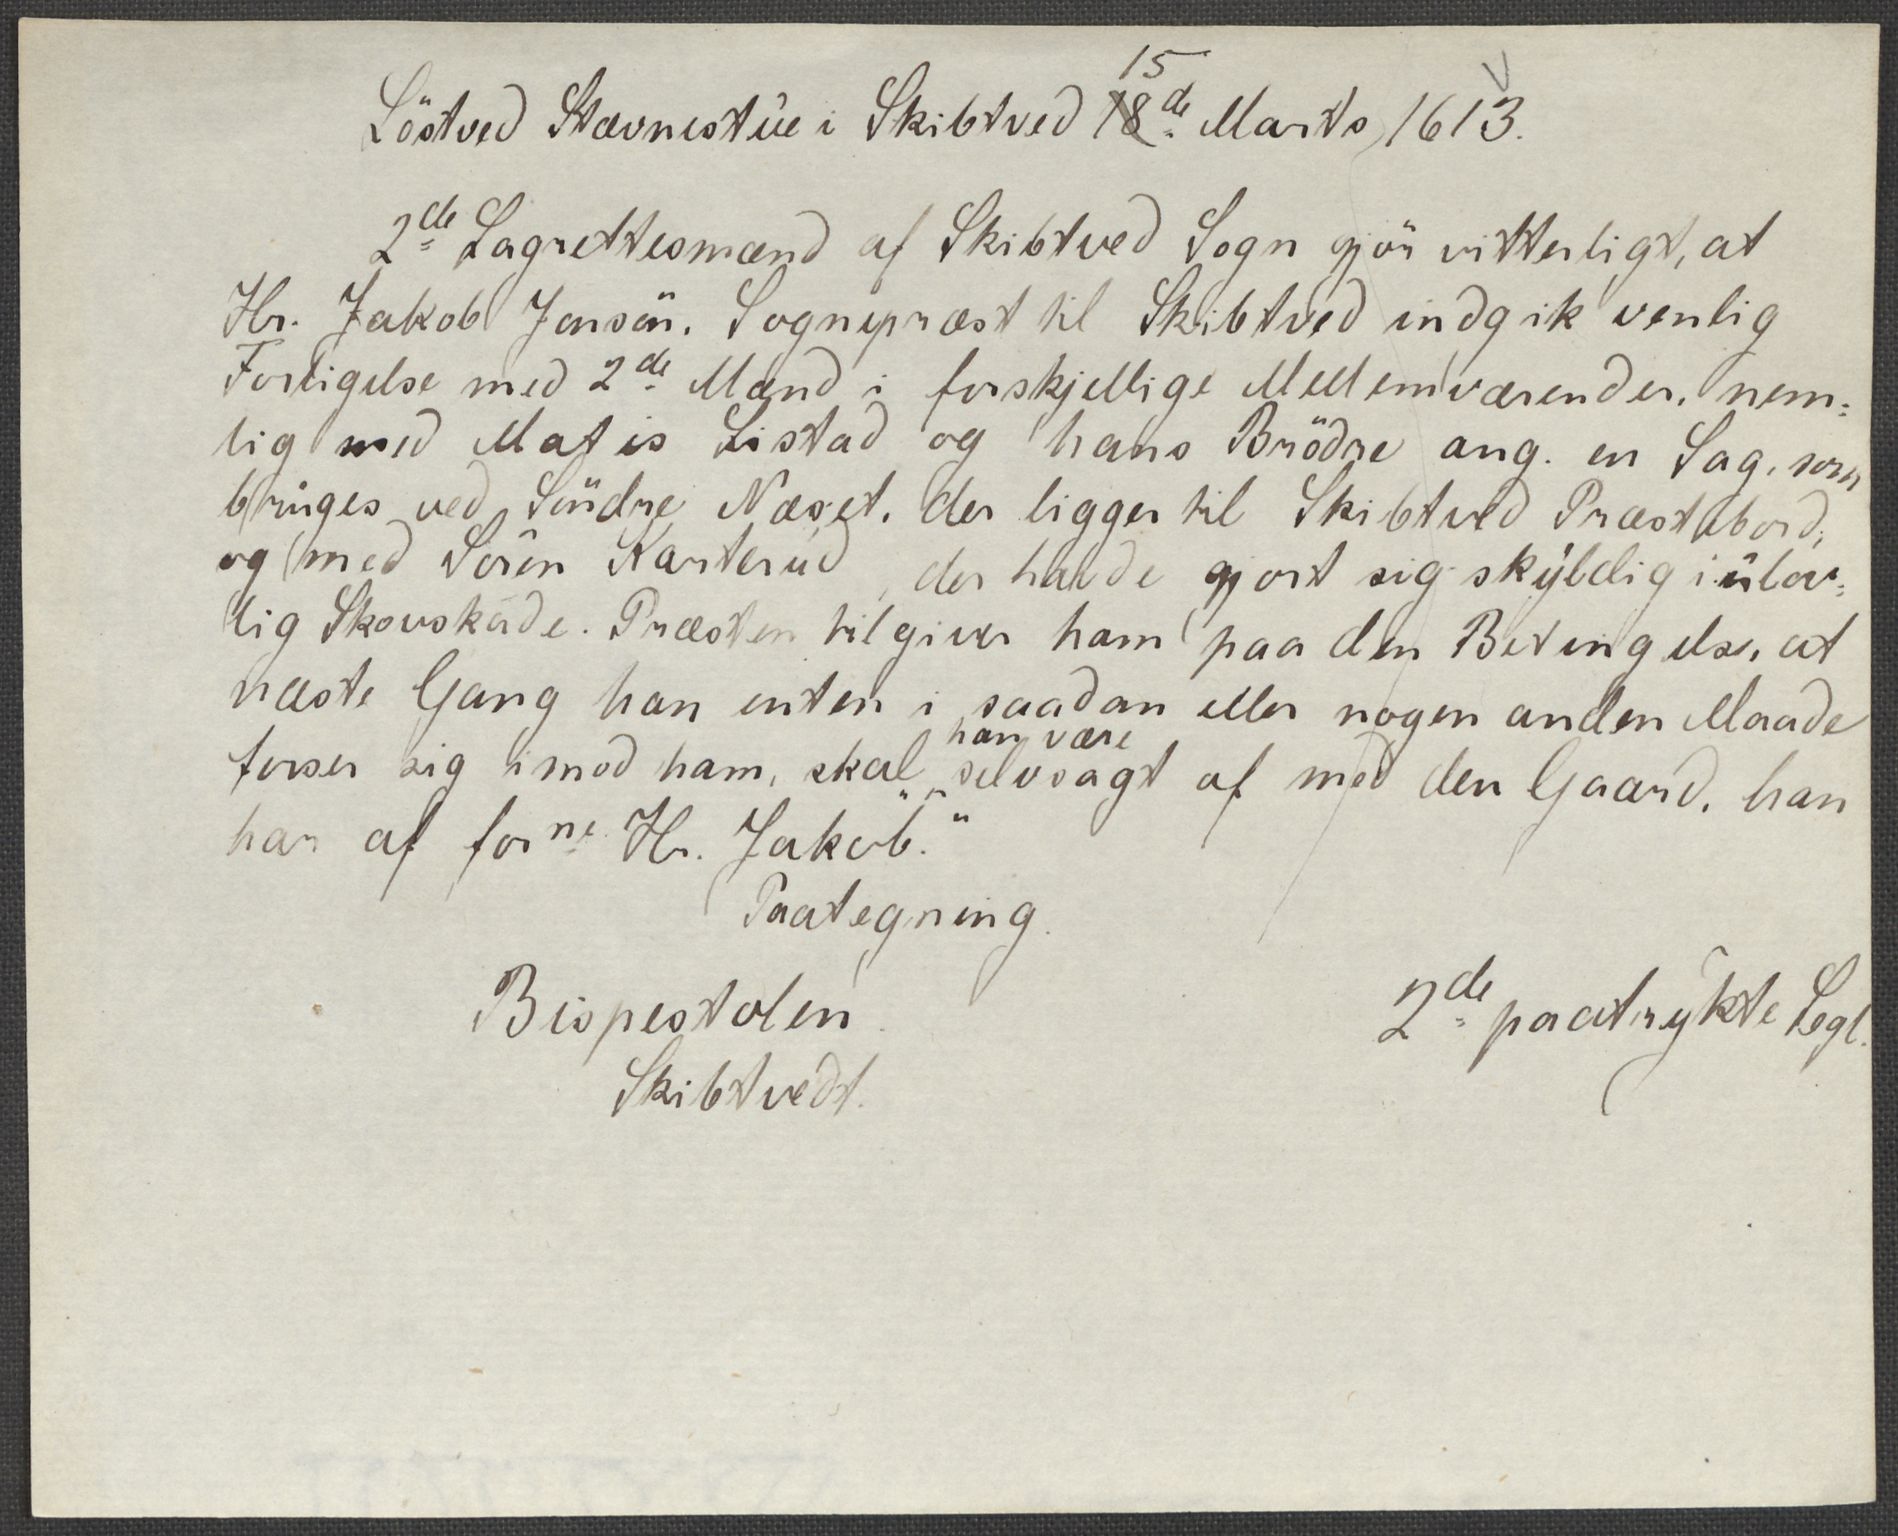 Löstved Stævnestue i Skibtved 15de Marts 1613.
2de Lagrettesmænd af Skibtved Sogn gjör vitterligt, at
Hr. Jakob Jensön, Sognepræst til Skibtved indgik venlig
Forligelse med 2de Mænd i forskjellige Mellemværender, nem=
lig med Matis Listad og hans Brödre ang. en Sag, som
bruges ved Söndre Næset, der ligger til Skibtved Præstebord,
og med Sören Karterud, der havde gjort sig skyldig i ulov=
lig Skovskade. Præsten tilgiver ham paa den Betingelse, at
næste Gang han enten i saadan eller nogen anden Maade
forser sig imod ham, skal "han være selvsagt af med den Gaard, han
har af forne Hr. Jakob."
Paategning.
Bispestolen.
2de paatrykte Segl.
Skibtvedt.